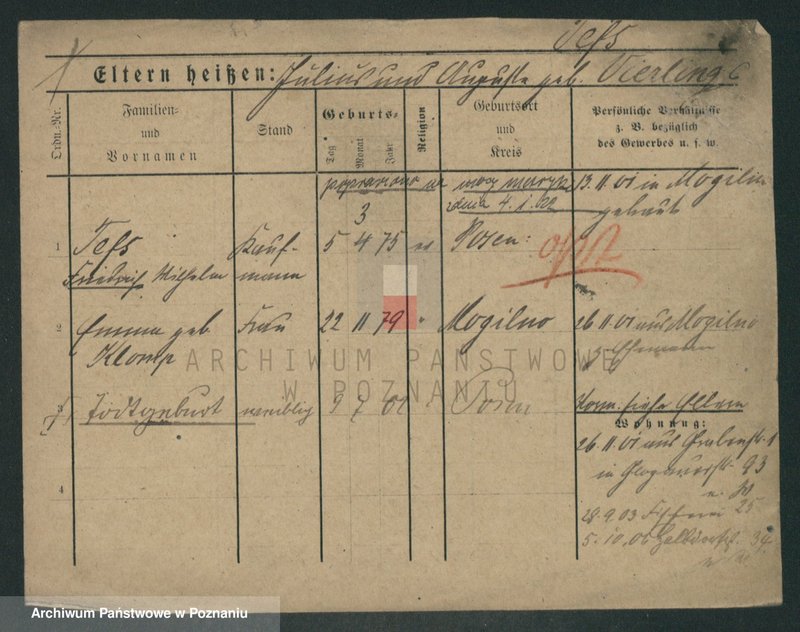 Tefs
Eltern heißen: Julius und Auguste geb. Vierling
Ordn.-Nr.
Familien-
und
Vornamen
Stand
Geburts-
Tag
Monat
Jahr
Religion
Geburtsort
und
Kreis
Persönliche Verhältnisse
z. B. bezüglich
des Gewerbes u. s. w.
poprawiono
dnia 4.1.22
13.11.01 in Mogilno
getraut
3
1 Tefs Kauf- 5 4 75 ev Posen
Friedrich Wilhelm mann
2 Emma geb. Frau 22 11 79 " Mogilno 26.11.01 aus Mogilno
Klomp
Ehemann
ARCHIWUM PAŃSTWOWE
W POZNANIU
3 Todtgeburt weiblich 9 7 02 Posen siehe Eltern
Wohnung:
26.11.01 aus
in Glogauerstr. 93
4
28.9.03 25
5.10.06 34
Archiwum Państwowe w Poznaniu